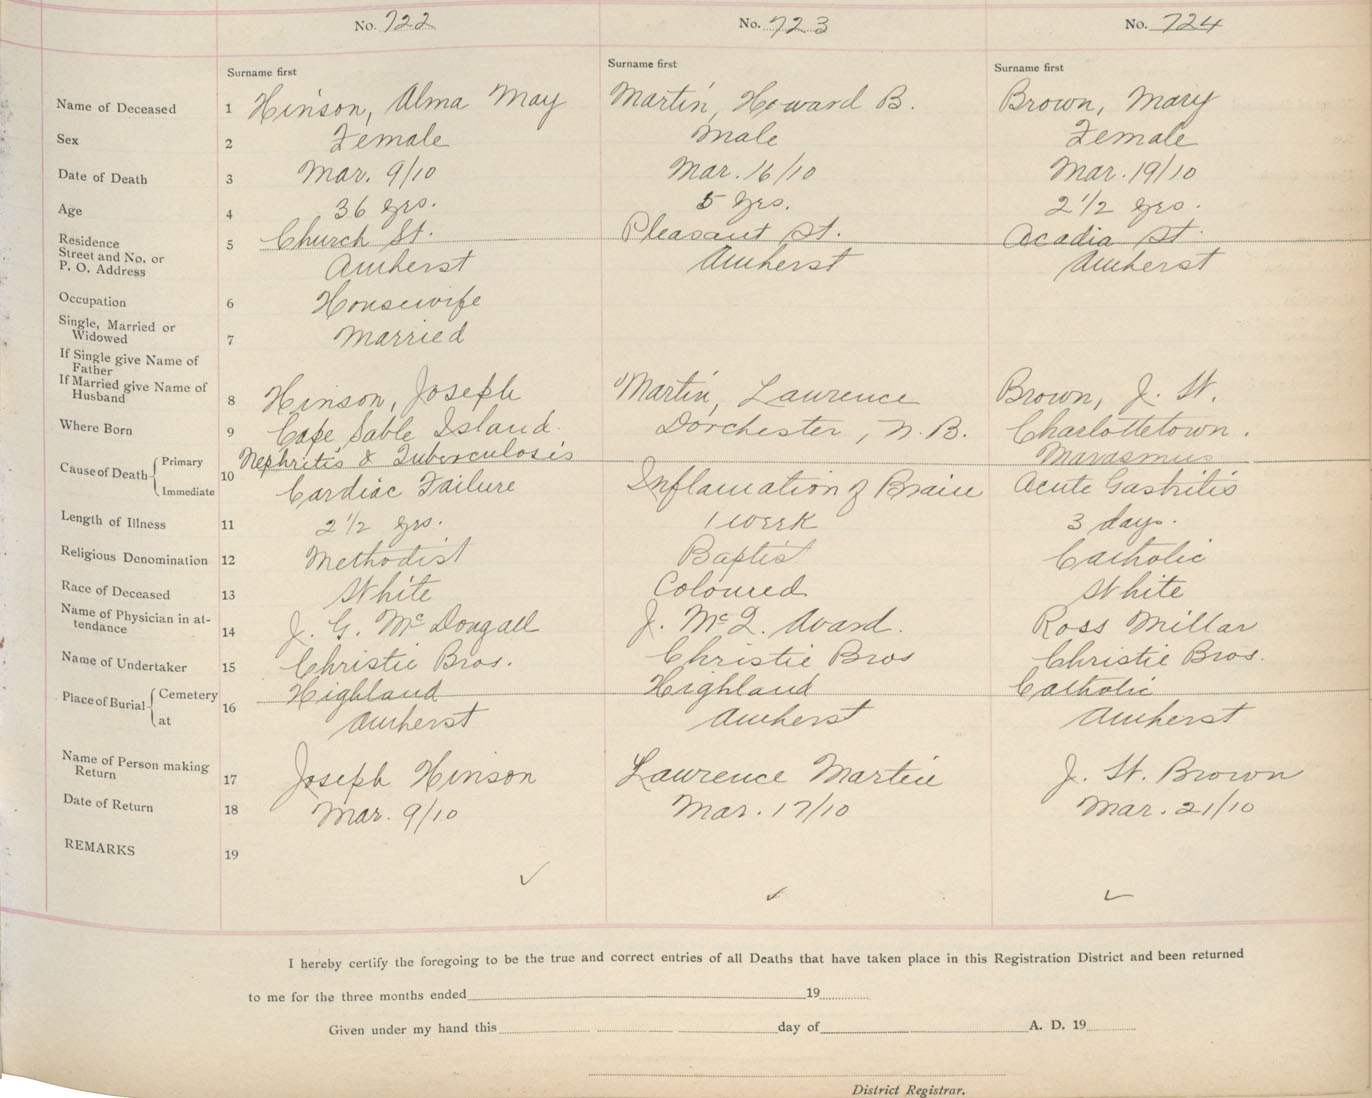 No. 722 No. 723 No. 724
Surname first Surname first Surname first
Name of Deceased 1 Hinson, Alma May Martin, Howard B. Brown, Mary
Sex 2 Female Male Female
Date of Death 3 Mar. 9/10 Mar. 16/10 Mar. 19/10
Age 4 36 yrs. 5 yrs. 2 1/2 yrs.
Residence 5 Church St. Pleasant St. Acadia St.
Street and No. or
P. O. Address Amherst Amherst Amherst
Occupation 6 Housewife
Single, Married or
Widowed 7 Married
If Single give Name of
Father
If Married give Name of
Husband 8 Hinson, Joseph Martin, Lawrence Brown, J. W.
Where Born 9 Cape Sable Island. Dorchester, N.B. Charlottetown.
Cause of Death Primary 10 Nephritis & Tuberculosis Marasmus
Immediate Cardiac Failure Inflamation of Brain Acute Gastritis
Length of Illness 11 2 1/2 yrs. 1 week 3 days.
Religious Denomination 12 Methodist Baptist Catholic
Race of Deceased 13 White Coloured White
Name of Physician in at-
tendance 14 J. G. McDougall J. McQ. Avard. Ross Millar
Name of Undertaker 15 Christie Bros. Christie Bros Christie Bros.
Place of Burial Cemetery 16 Highland Highland Catholic
at Amherst Amherst Amherst
Name of Person making
Return 17 Joseph Hinson Lawrence Martin J. W. Brown
Date of Return 18 Mar. 9/10 Mar. 17/10 Mar. 21/10
REMARKS 19
I hereby certify the foregoing to be the true and correct entries of all Deaths that have taken place in this Registration District and been returned
to me for the three months ended 19
Given under my hand this day of A. D. 19
District Registrar.